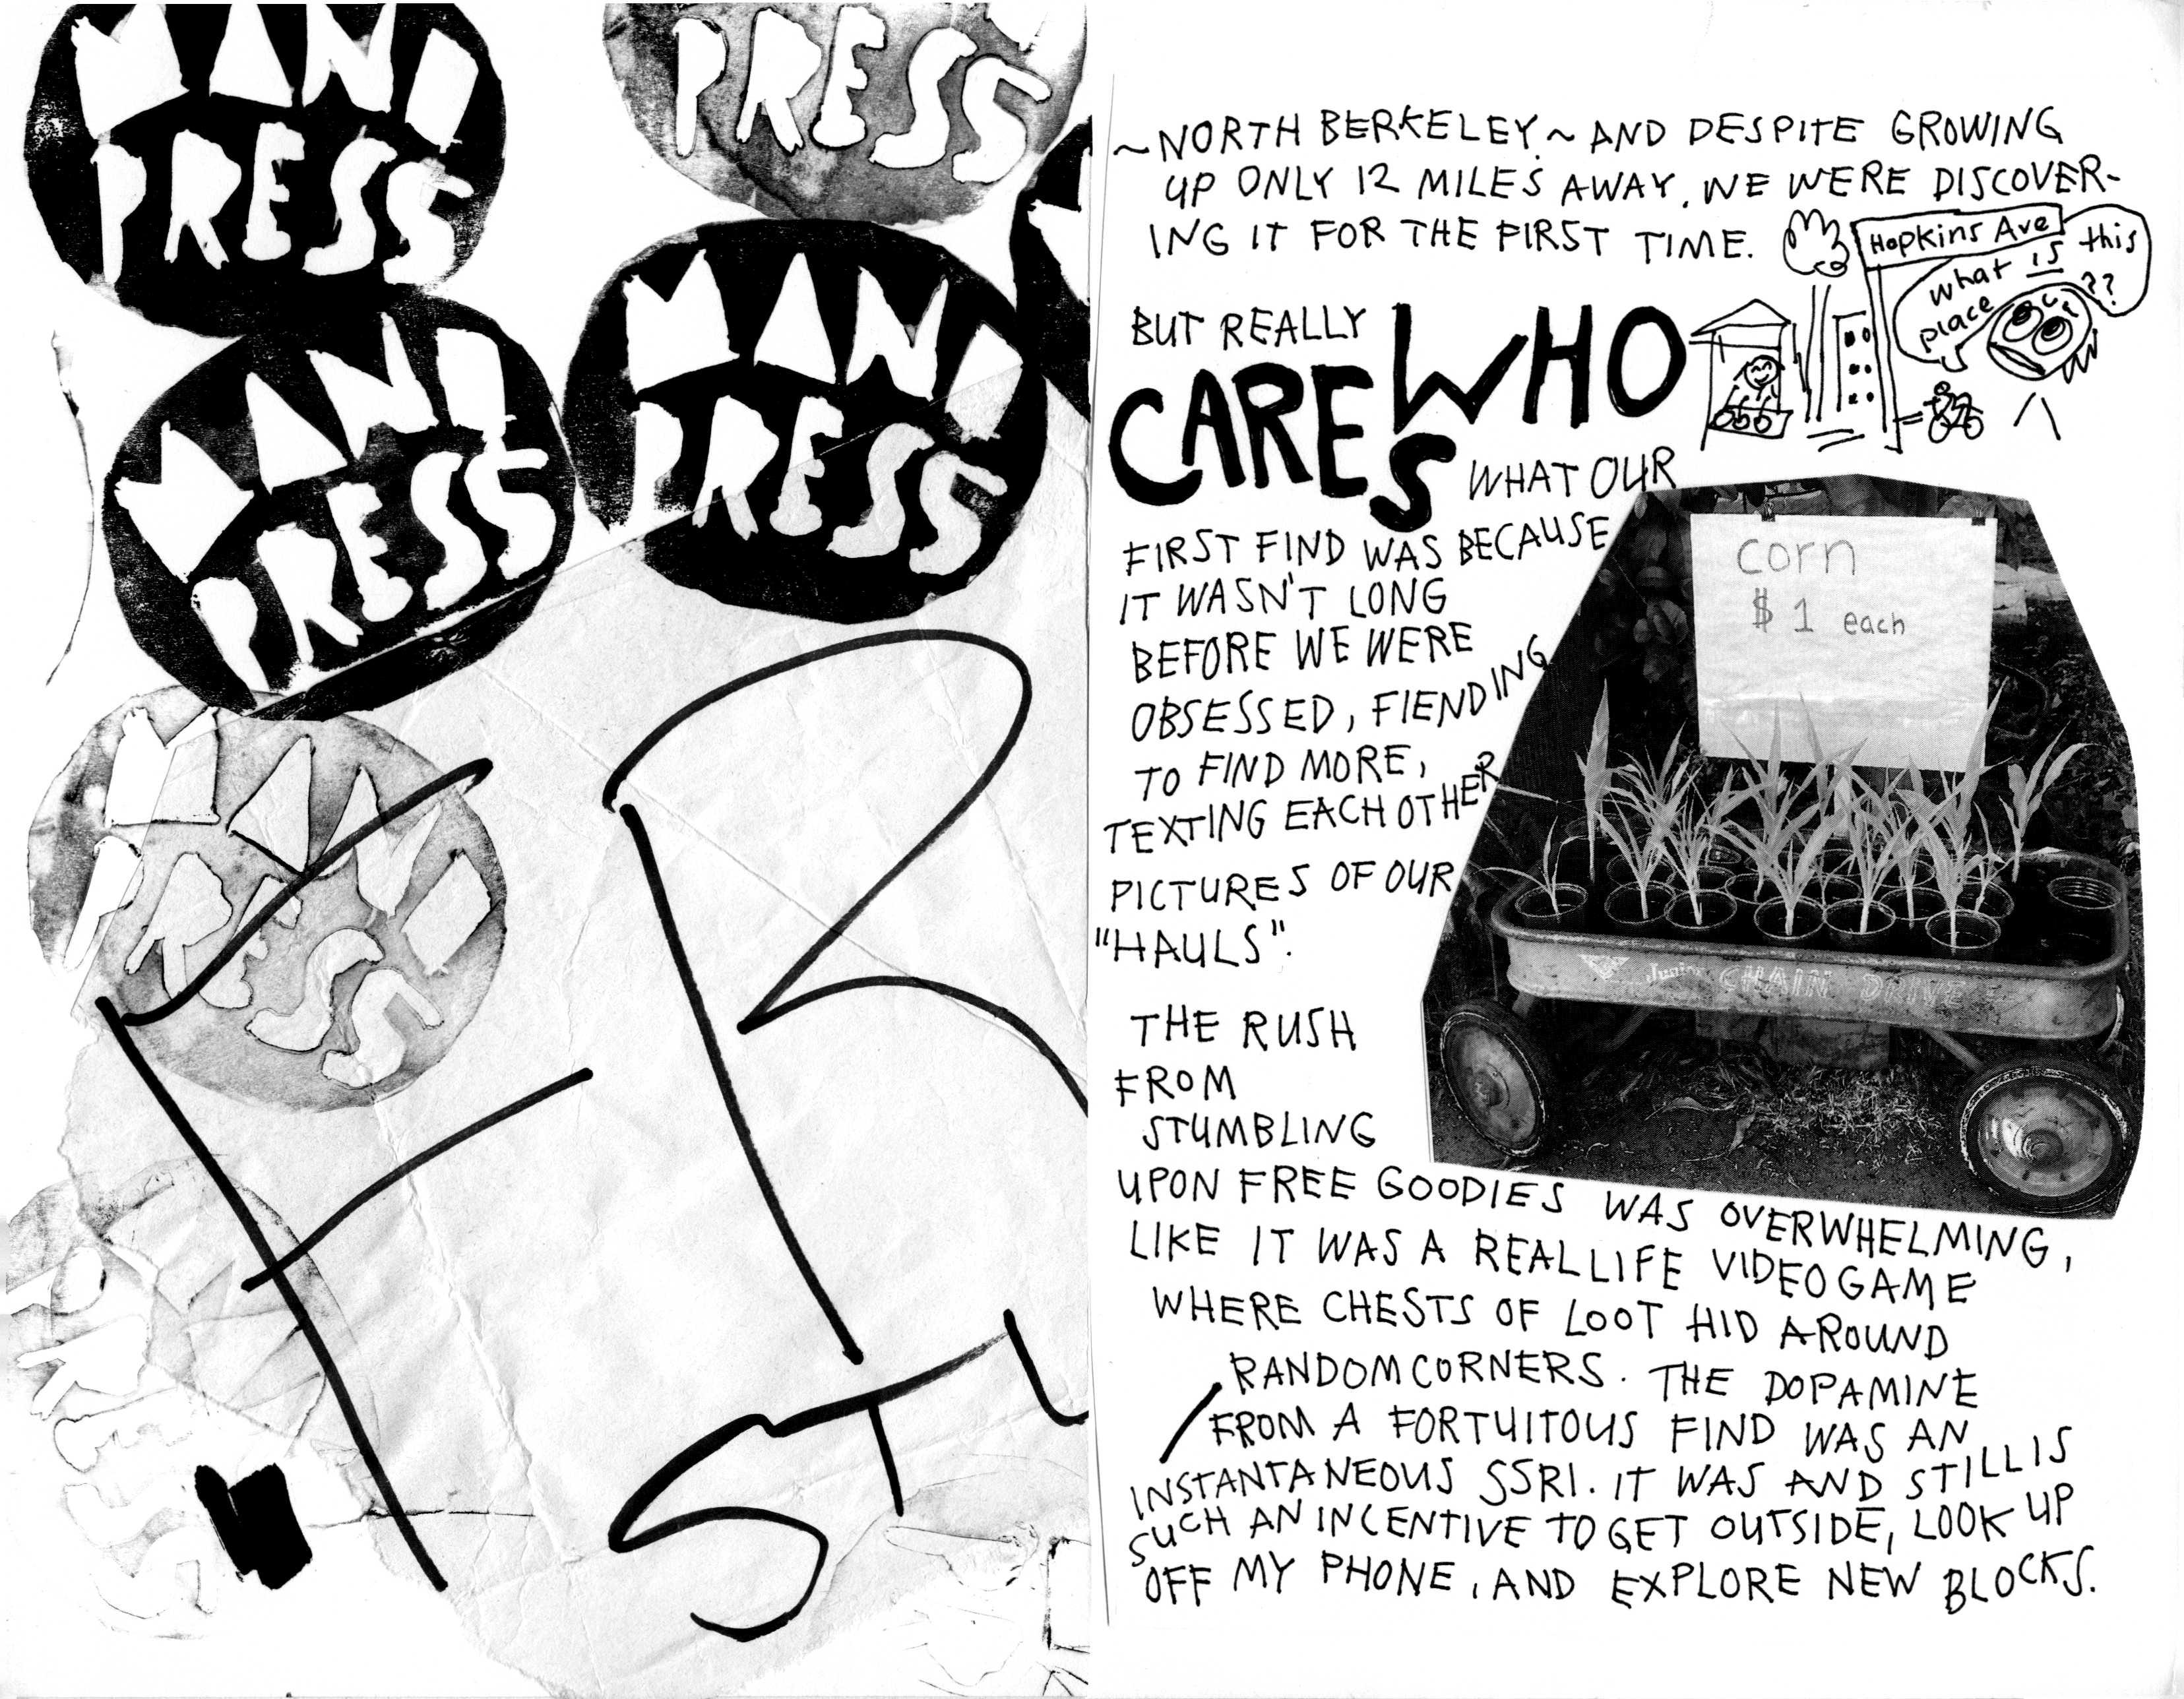 MANI
PRESS
PRESS
MANI
PRESS
MANI
PRESS
MANI
PRESS
~NORTH BERKELEY~ AND DESPITE GROWING
UP ONLY 12 MILES AWAY, WE WERE DISCOVER-
ING IT FOR THE FIRST TIME.
Hopkins Ave
What IS this
place ??
BUT REALLY
WHO
CARES
WHAT OUR
FIRST FIND WAS BECAUSE
IT WASN'T LONG
BEFORE WE WERE
OBSESSED, FIENDING
TO FIND MORE,
TEXTING EACH OTHER
PICTURES OF OUR
"HAULS".
corn
$1 each
Junior CHAIN DRIVE
THE RUSH
FROM
STUMBLING
UPON FREE GOODIES WAS OVERWHELMING,
LIKE IT WAS A REAL LIFE VIDEO GAME
WHERE CHESTS OF LOOT HID AROUND
RANDOM CORNERS. THE DOPAMINE
FROM A FORTUITOUS FIND WAS AN
INSTANTANEOUS SSRI. IT WAS AND STILL IS
SUCH AN INCENTIVE TO GET OUTSIDE, LOOK UP
OFF MY PHONE, AND EXPLORE NEW BLOCKS.